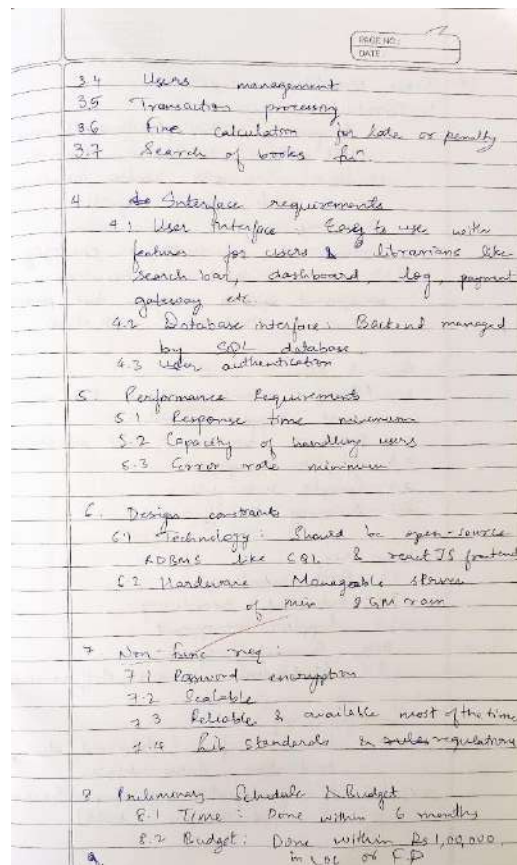 PAGE NO.:
DATE:
3.4 Users management
3.5 Transaction processing
3.6 Fine calculation for late or penalty
3.7 Search of books fun.
4. Interface requirements
4.1 User Interface: Easy to use with
features for users & librarians like
search bar, dashboard, log, payment
gateway etc.
4.2 Database interface: Backend managed
by SQL database
4.3 User authentication
5. Performance Requirements
5.1 Response time minimum
5.2 Capacity of handling users
5.3 Error rate minimum
6. Design constraints
6.1 Technology: Should be open-source
RDBMS like SQL & react JS frontend
6.2 Hardware: Manageable
of min 8 GM ram
7 Non-func req:
7.1 Password encryption
7.2 Scalable
7.3 Reliable & available most of the time
7.4 Lib standards & regulations
8. Preliminary Schedule & Budget
8.1 Time: Done within 6 months
8.2 Budget: Done within Rs 1,00,000,
in LOC or FP